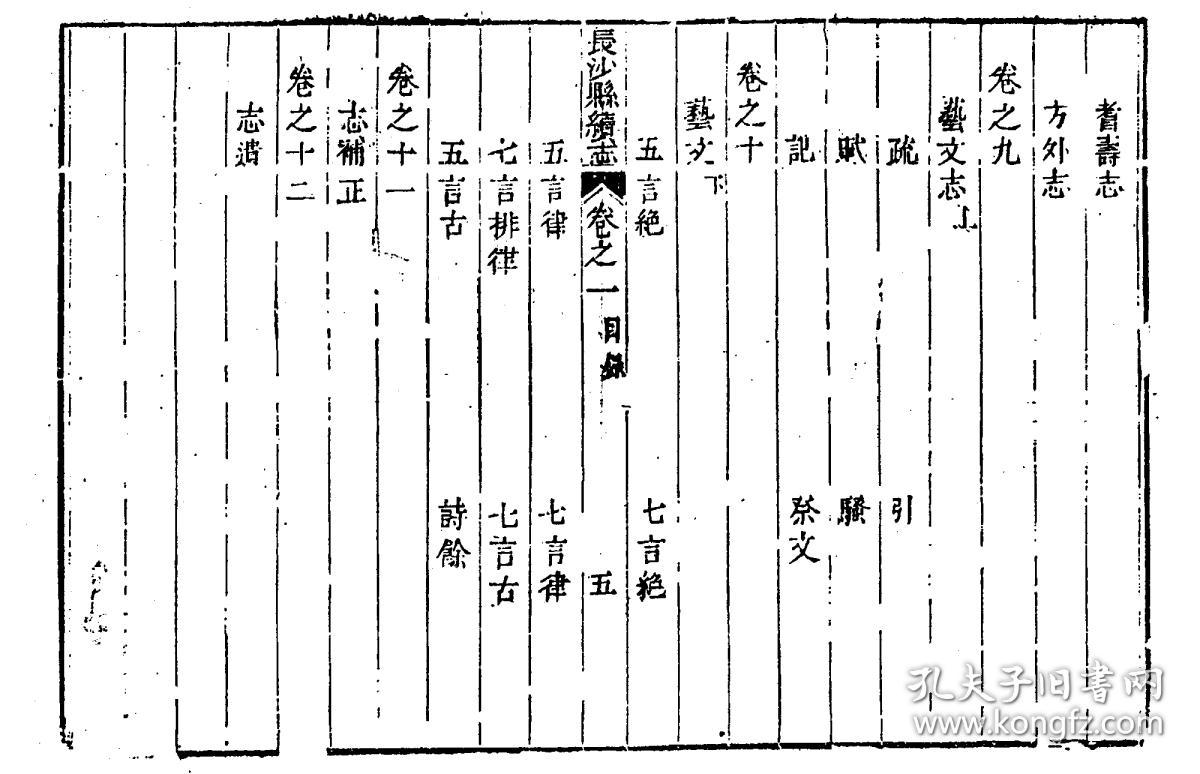 耆壽志
方外志
卷之九
藝文志上
疏 引
賦 騷
記 祭文
卷之十
藝文下
五言絕 七言絕
長沙縣續志 卷之一 目錄 五
五言律 七言律
七言排律 七言古
五言古 詩餘
卷之十一
志補正
卷之十二
志遺
孔夫子旧书网
www.kongfz.com